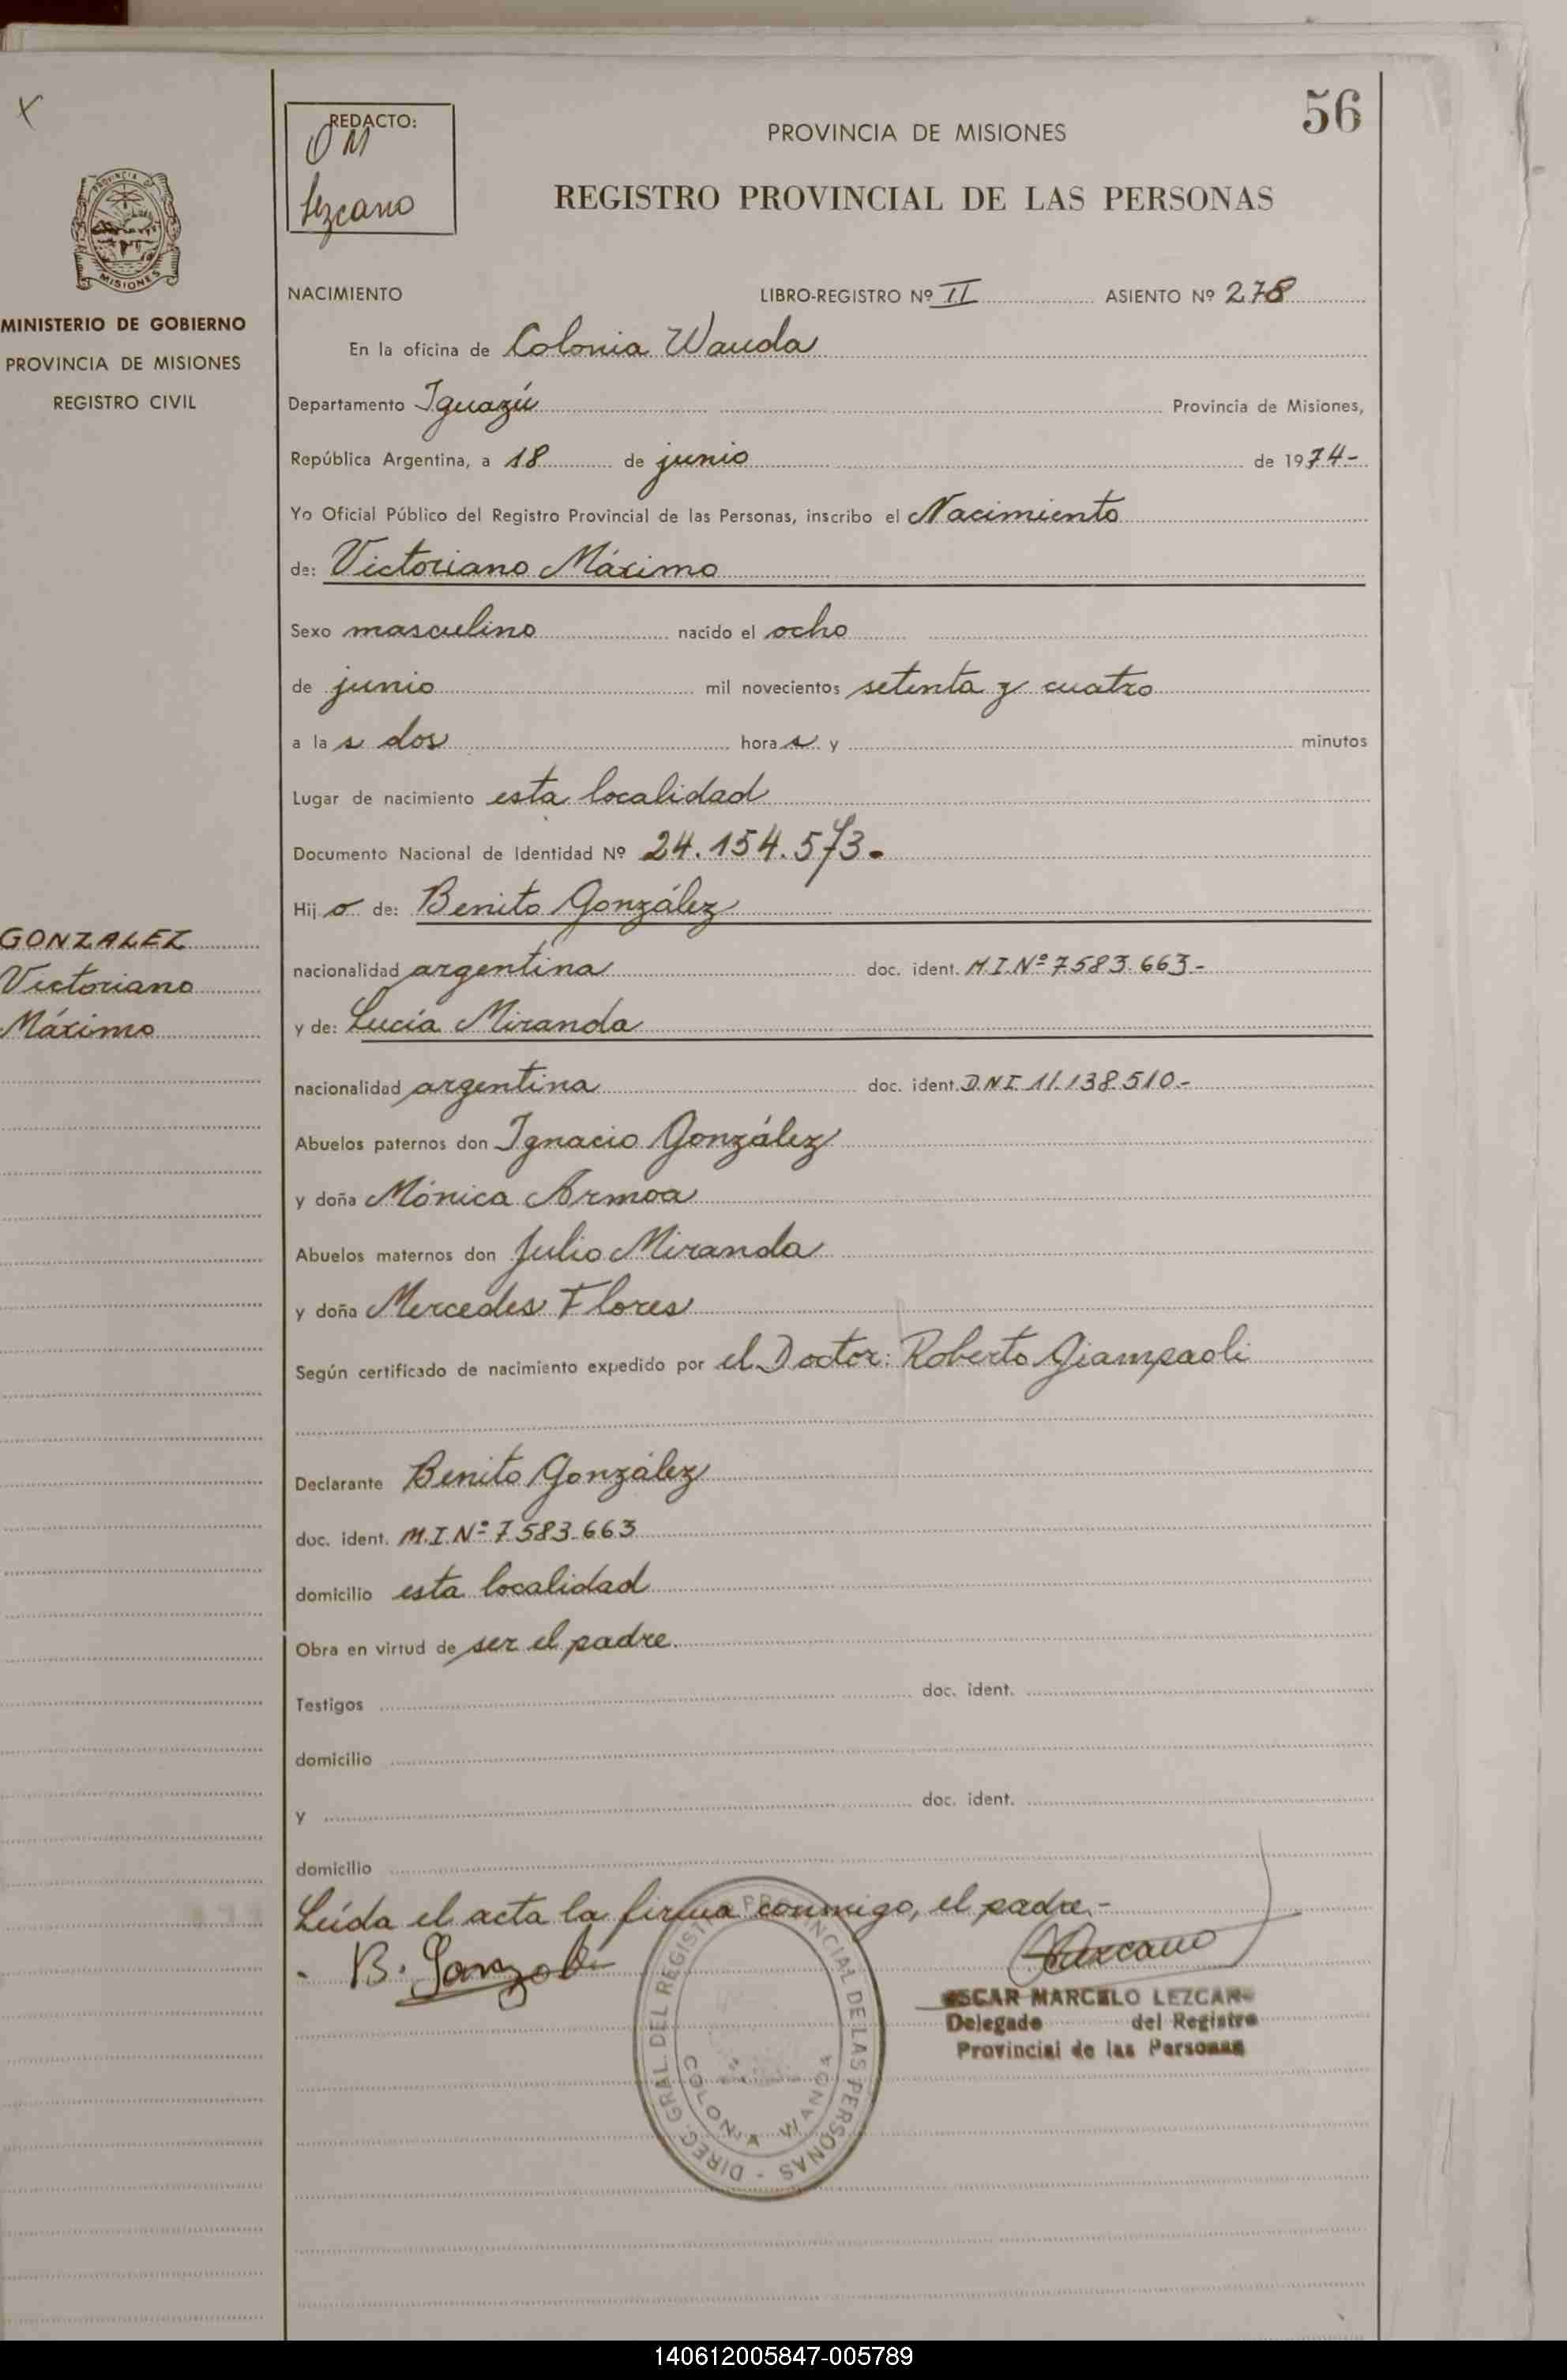 56
REDACTO:
OM
Lezcano
PROVINCIA DE MISIONES
REGISTRO PROVINCIAL DE LAS PERSONAS
PROVINCIA DE
MISIONES
MINISTERIO DE GOBIERNO
PROVINCIA DE MISIONES
REGISTRO CIVIL
GONZALEZ
Victoriano
Máximo
NACIMIENTO LIBRO-REGISTRO Nº II ASIENTO Nº 278
En la oficina de Colonia Wanda
Departamento Iguazú Provincia de Misiones,
República Argentina, a 18 de junio de 1974-
Yo Oficial Público del Registro Provincial de las Personas, inscribo el Nacimiento
de: Victoriano Máximo
Sexo masculino nacido el ocho
de junio mil novecientos setenta y cuatro
a las dos horas y minutos
Lugar de nacimiento esta localidad
Documento Nacional de Identidad Nº 24.154.573.
Hijo de: Benito González
nacionalidad argentina doc. ident. M.I.Nº 7583.663-
y de: Lucía Miranda
nacionalidad argentina doc. ident. D.N.I. 11.138510-
Abuelos paternos don Ignacio González
y doña Mónica Armoa
Abuelos maternos don Julio Miranda
y doña Mercedes Flores
Según certificado de nacimiento expedido por el Doctor: Roberto Giampaoli
Declarante Benito González
doc. ident. M.I.Nº 7583.663
domicilio esta localidad
Obra en virtud de ser el padre.
Testigos doc. ident.
domicilio
y doc. ident.
domicilio
Leída el acta la firma conmigo, el padre.-
B. Gonzale
Lezcano
OSCAR MARCELO LEZCANO
Delegado del Registro
Provincial de las Personas
DIREC. GRAL. DEL REGISTRO PROVINCIAL DE LAS PERSONAS -
COLONIA WANDA
140612005847-005789